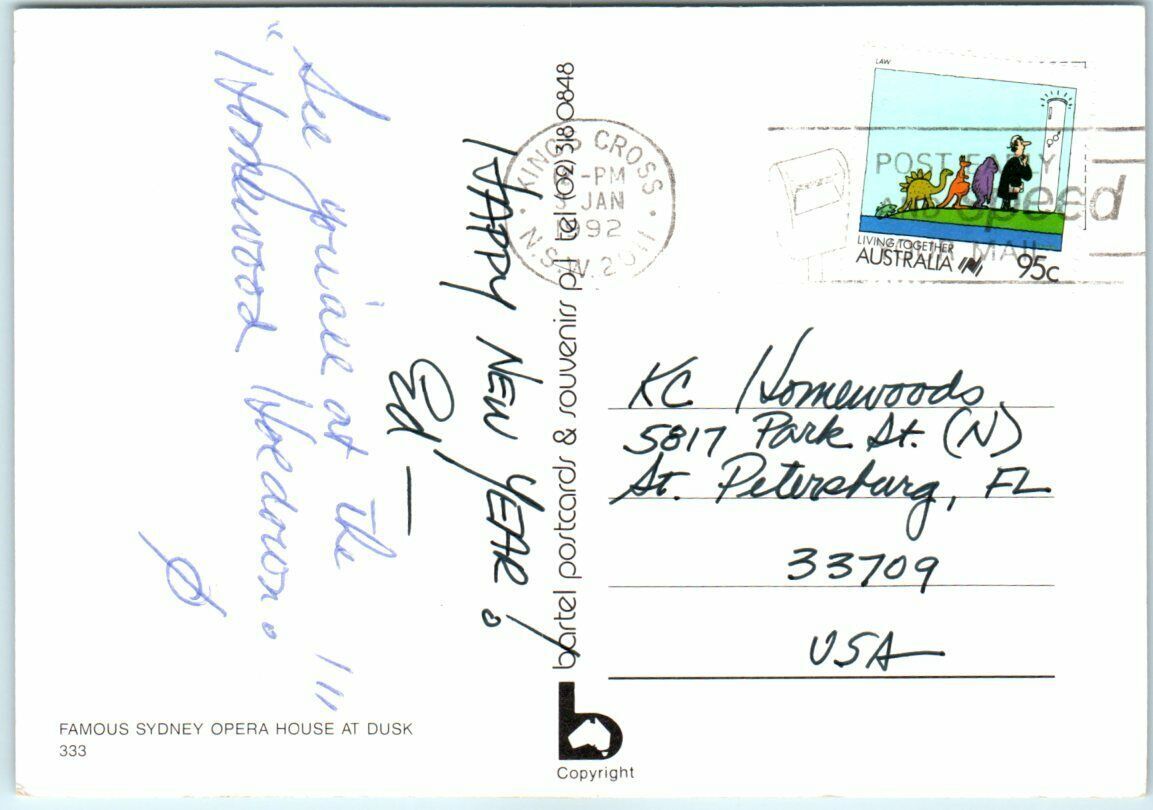 "See you'all at the
"Homewood Hoedown. !"
HAPPY NEW YEAR!
Ed —
bartel postcards & souvenirs p/l tel (02) 318 0848
KINGS CROSS
-PM
JAN
1992
N.S.W. 2011
POST EARLY
AND speed
MAIL
LAW
LIVING TOGETHER
AUSTRALIA
95c
KC Homewoods
5817 Park St. (N)
St. Petersburg, FL
33709
USA
FAMOUS SYDNEY OPERA HOUSE AT DUSK
333
b
Copyright